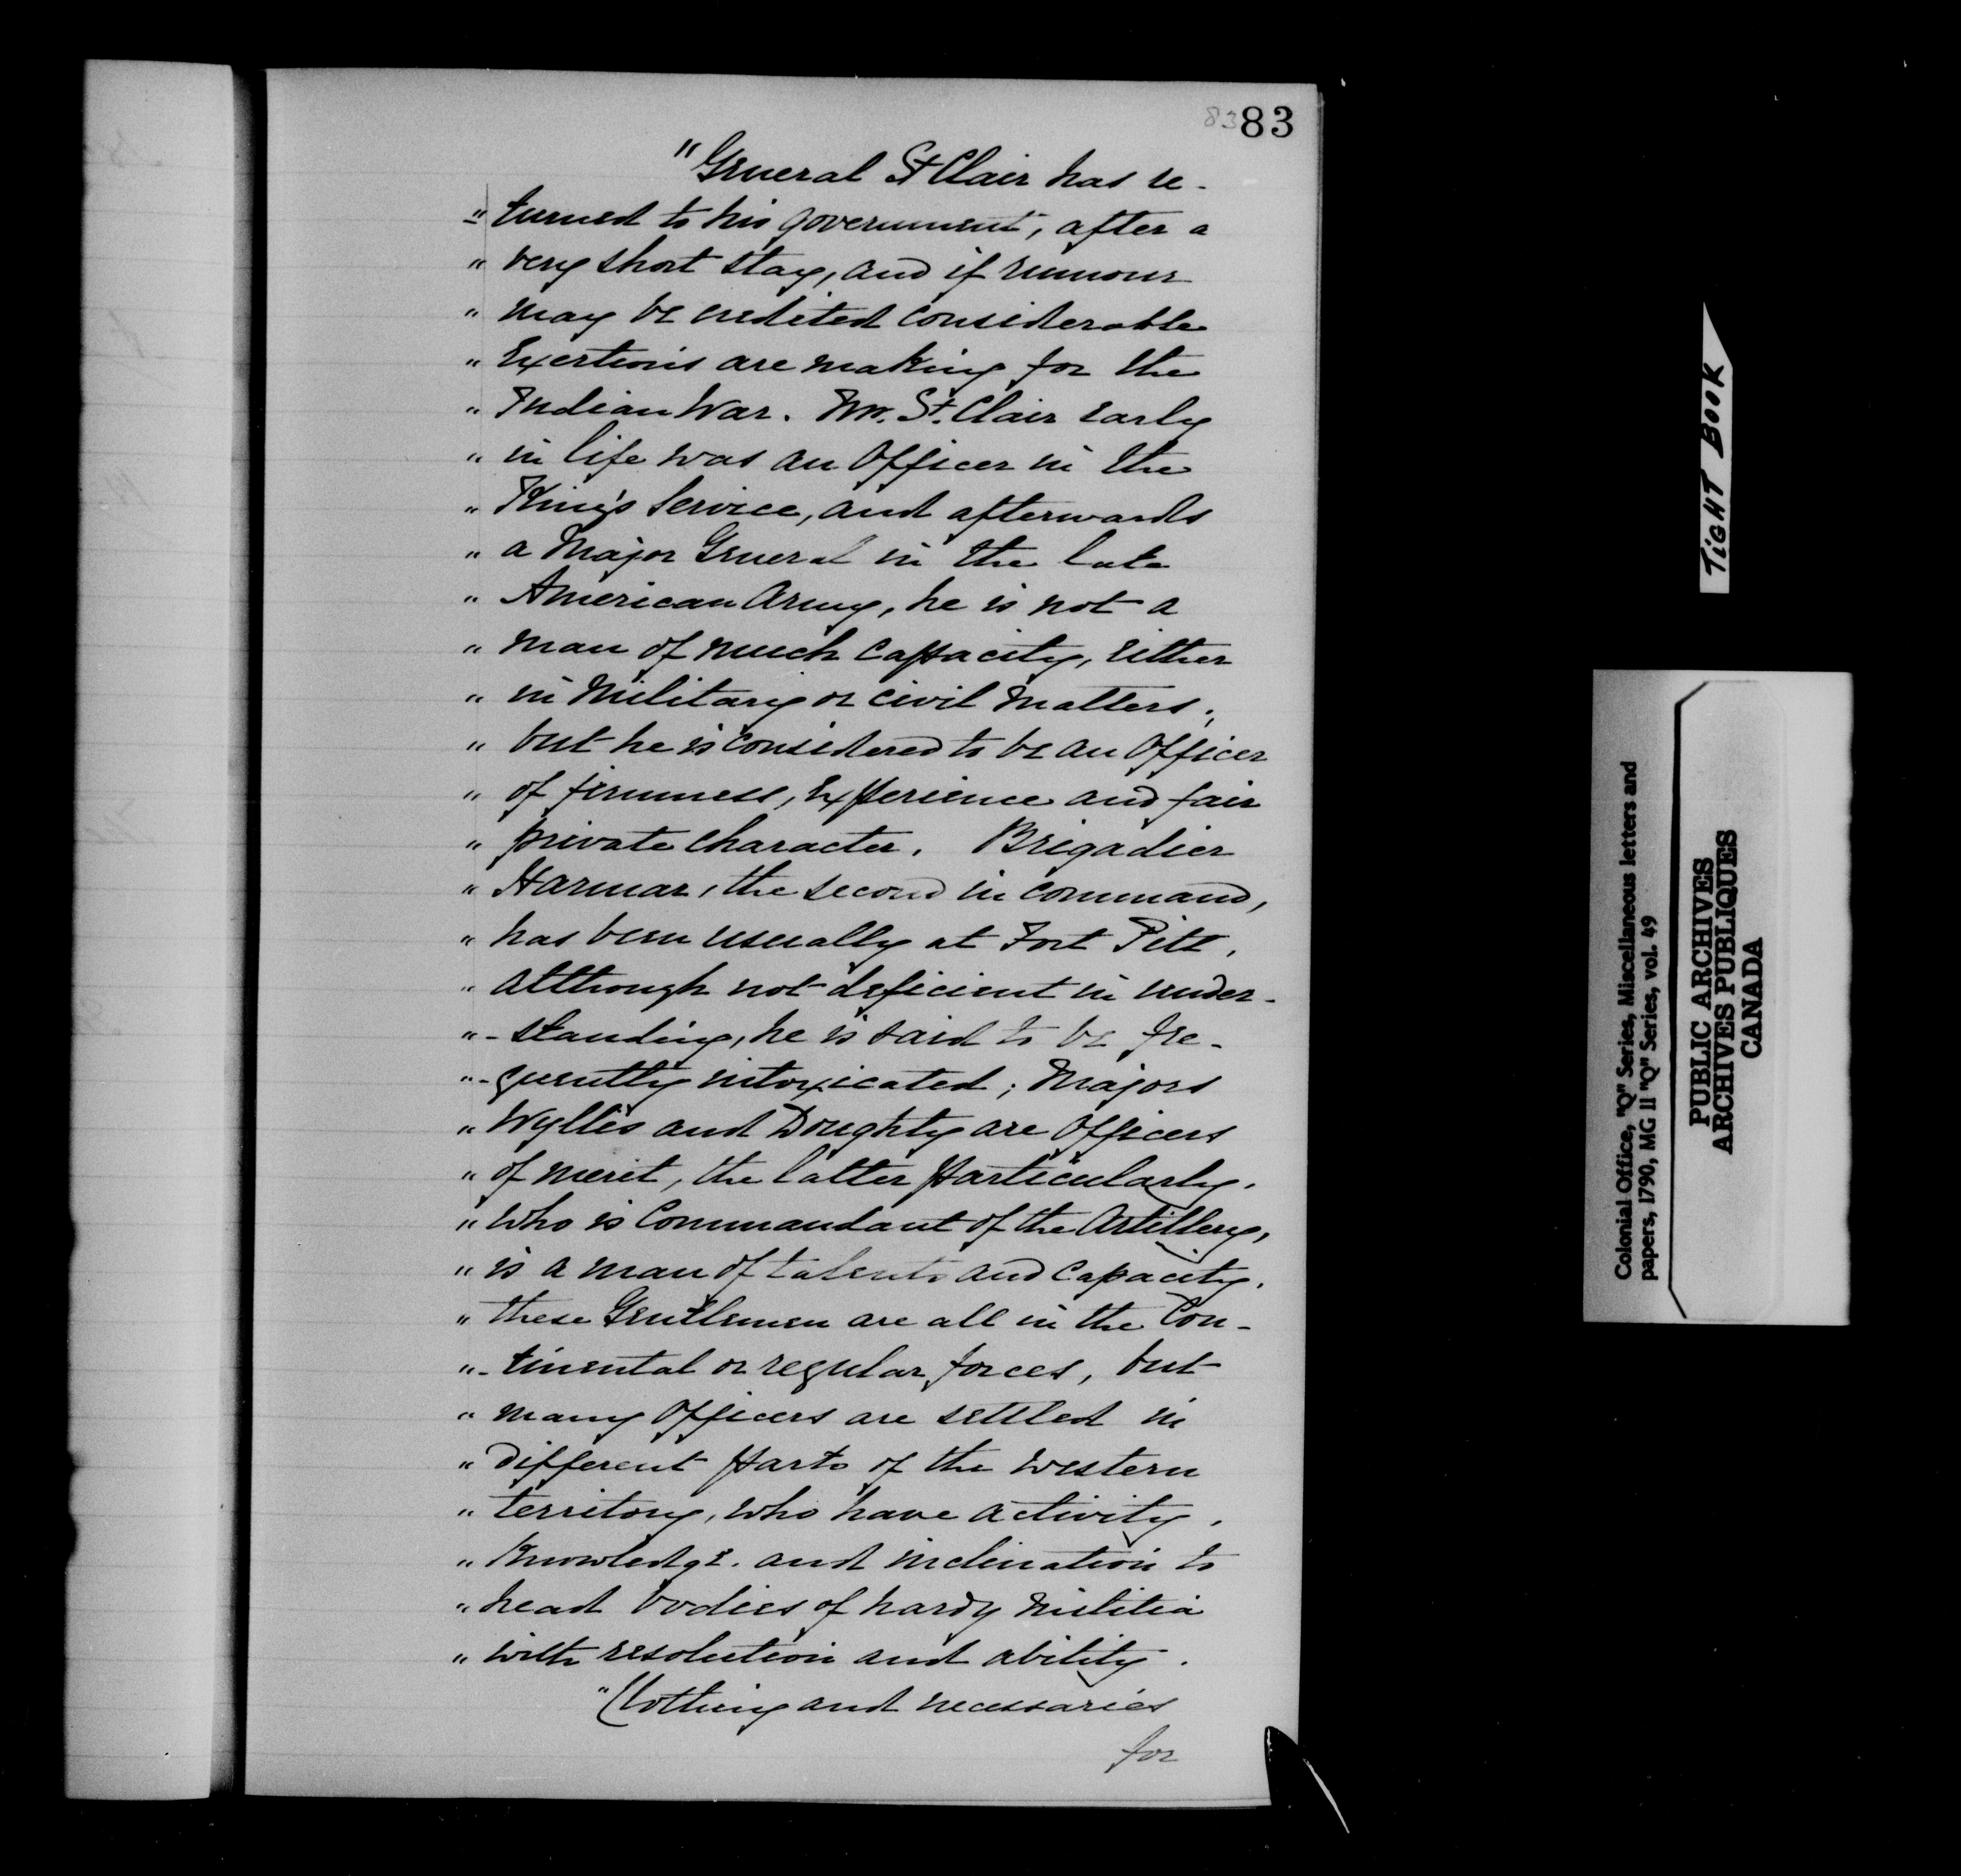 83 83
"General St Clair has re-
"-turned to his government, after a
" very short stay, and if rumour
" may be credited considerable
" Exertions are making for the
" Indian War. Mr. St. Clair early
" in life was an Officer in the
" King's Service, and afterwards
" a Major General in the late
" American Army, he is not a
" man of much capacity, either
" in Military or civil Matters;
" but he is considered to be an Officer
" of firmness, Experience and fair
" private character. Brigadier
" Harmar, the second in command,
" has been usually at Fort Pitt,
" although not deficient in under-
"-standing, he is said to be fre-
"-quently intoxicated; Majors
" Wyllis and Doughty are Officers
" of merit, the latter particularly,
" who is Commandant of the Artillery,
" is a man of talents and capacity,
" these Gentlemen are all in the Con-
"-tinental or regular forces, but
" many Officers are settled in
" different parts of the western
" territory, who have activity,
" Knowledge, and inclination to
" head bodies of hardy Militia
" with resolution and ability.
"Clothing and necessaries
for
TiGHT BOOK
Colonial Office, "Q" Series, Miscellaneous letters and
papers, 1790, MG 11 "Q" Series, vol. 49
PUBLIC ARCHIVES
ARCHIVES PUBLIQUES
CANADA